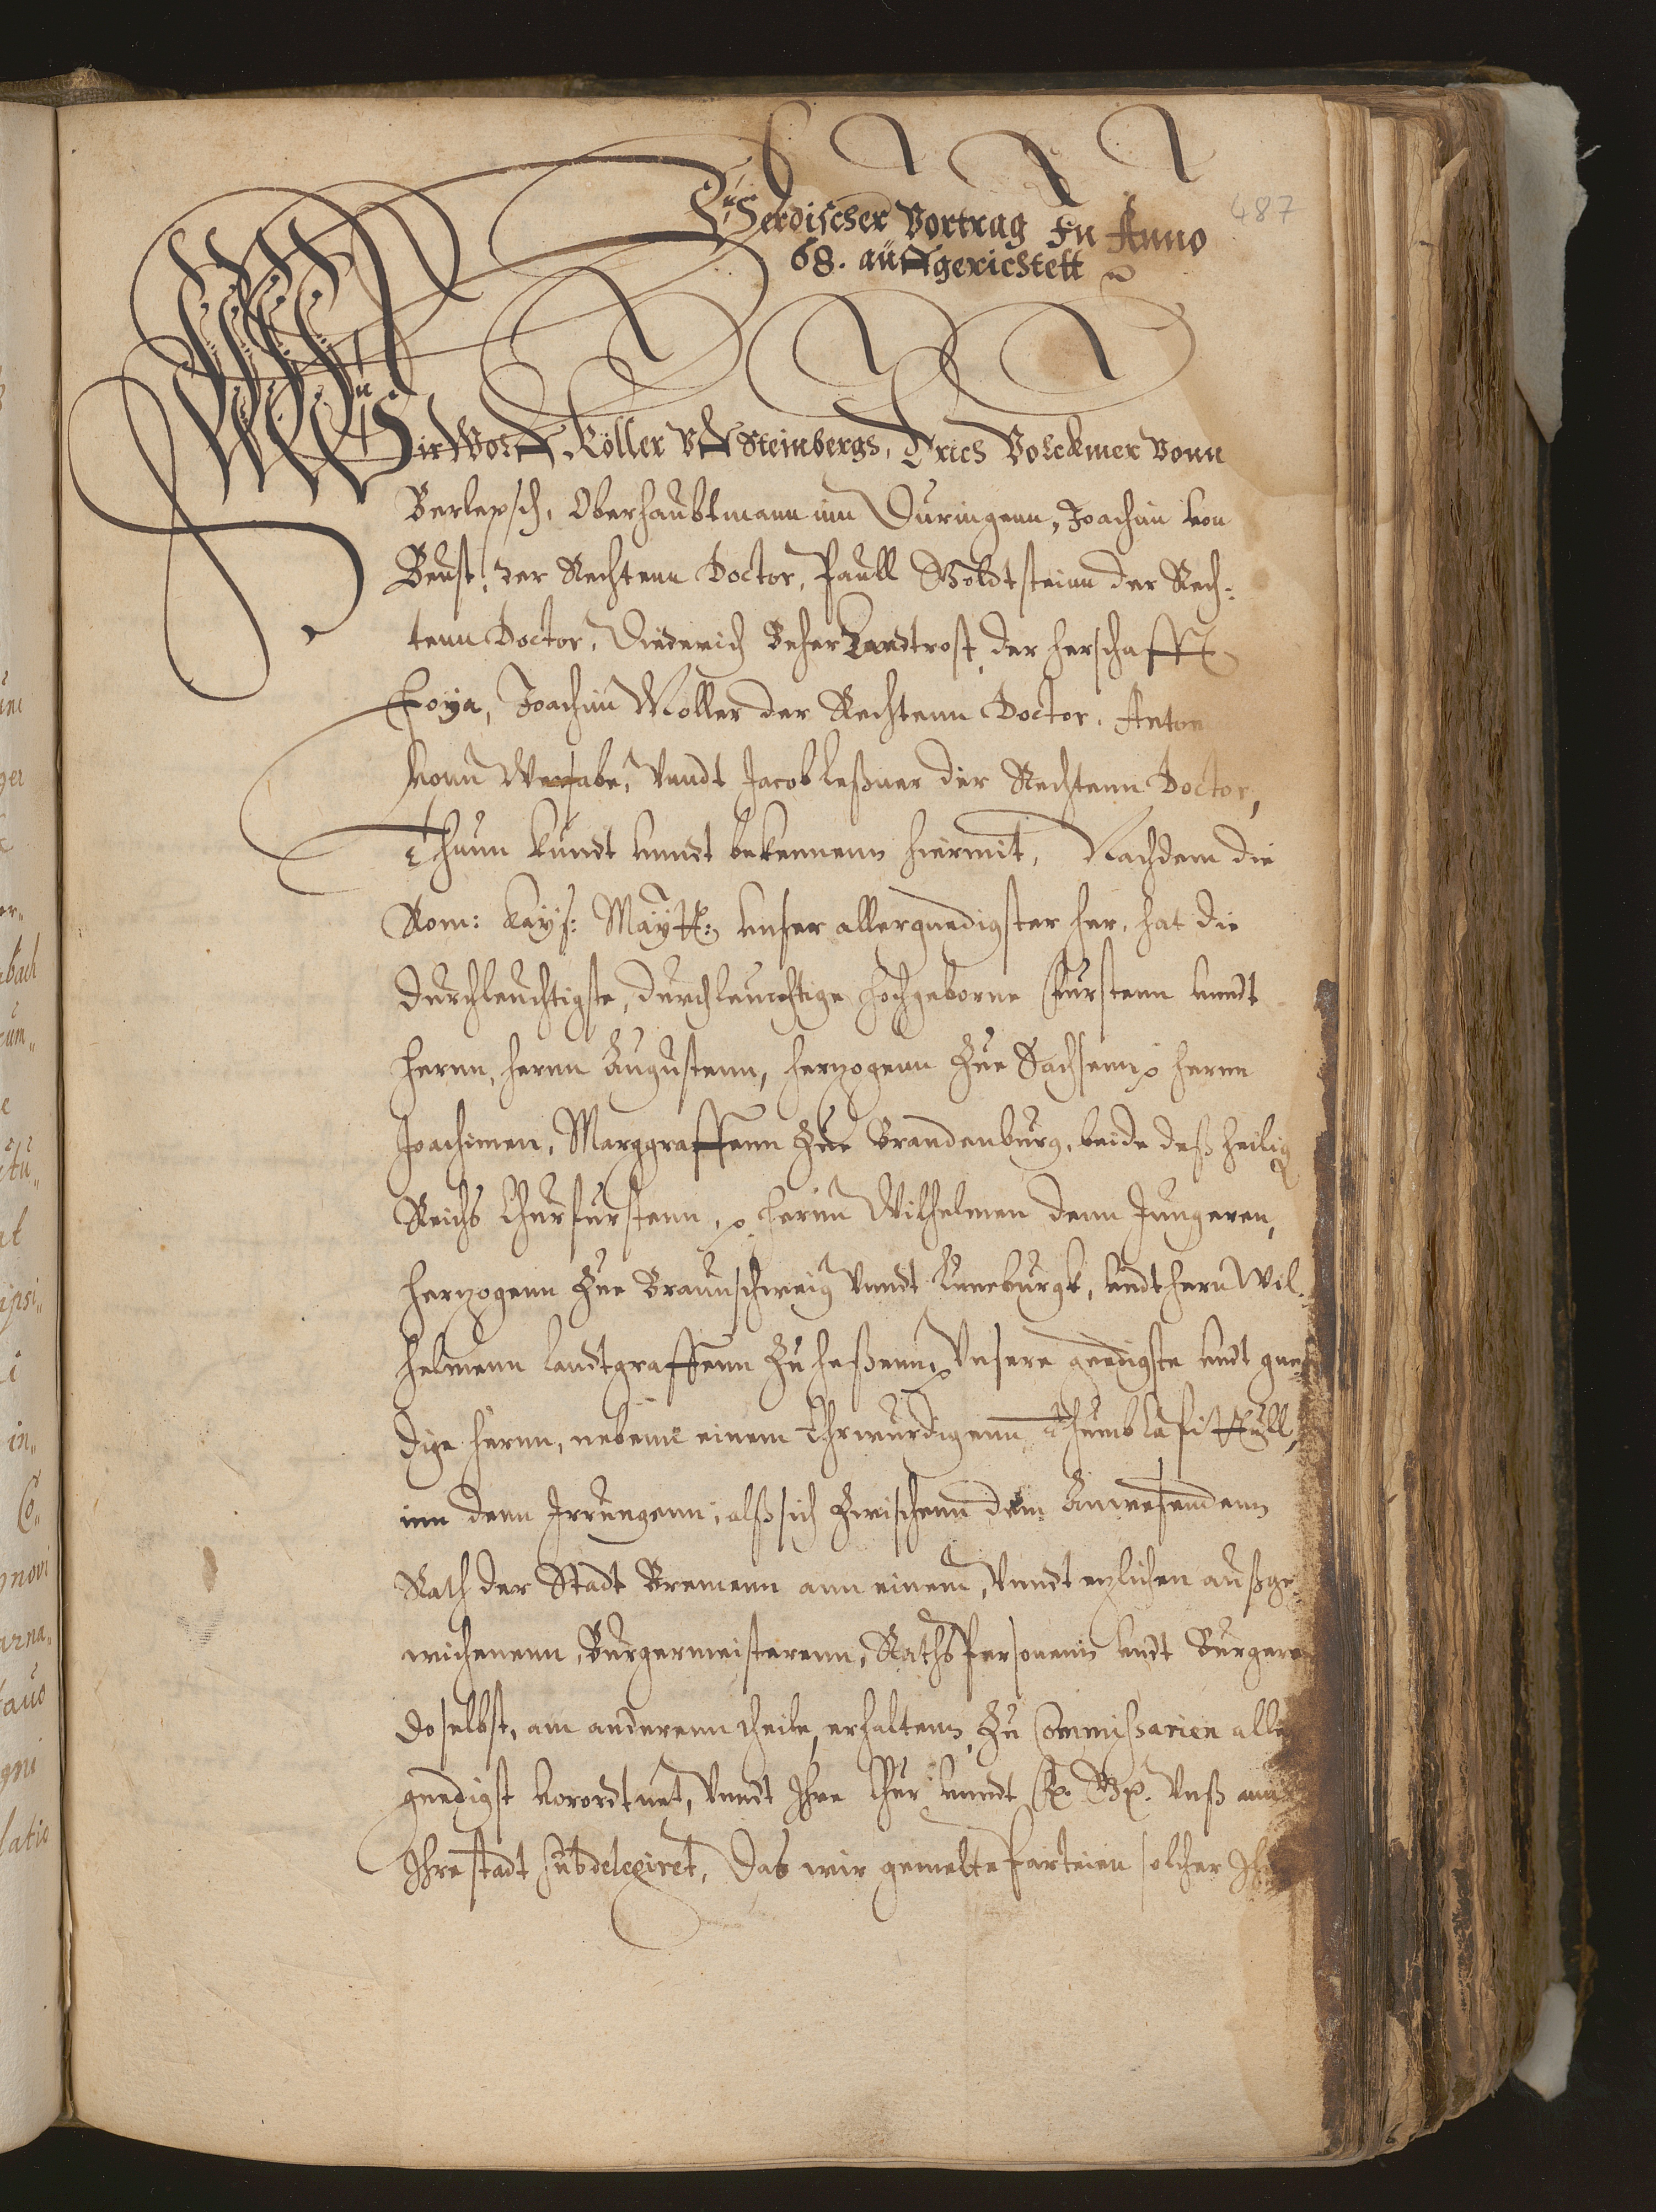 487
Verdischer Vortrag In Anno
68. auffgerichtett
Wir Wolff Köller vff Steinbergs, Erich Volckmer vonn
Berlepsch, Oberhaubtmann inn Duringenn, Joachim von
Beust, der Rechtenn Doctor, Paull Voldtsteinn der Rech-
tenn Doctor, Diederich Beher Landtrost, der Herschafft
Hoya, Joachim Moller der Rechtenn Doctor, Anton
vonn Wersabe, vnndt Jacob Leßner der Rechtenn Doctor,
Thuun kundt vnndt bekennenn hiermit, Nachdem die
Rom: Kays: Maytt: vnser allergnedigster her, hat die
durchleuchtigste, durchleuchtige hochgeborne Furstenn vnndt
Hernn, Hernn Augustenn, Hertzogenn Zue Sachsenn Hernn
Joachimen, Marggraffenn Zue Brandenburg, beide deß heilig
Reichs Churfurstenn, Hernn Wilhelmen denn Jungeren,
Hertzogenn Zue Braunschweig vnndt Luneburgk, vndt Hern Wil-
helmenn Landtgraffenn Zu Heßenn, Vnsere gnedigste vndt gne-
dige Hernn, nebenn einem Ehrwurdigenn Thumb Capittull,
inn denn Irrungenn, alß sich Zwischenn dem Anwesendenn
Rath der Stadt Bremenn ann einem, vnndt etzlichen außge-
wichenenn, Burgermeisterenn, Rathspersonenn vndt Burgeren
doselbst, am anderenn theile, erhaltenn, Zu Commissarien aller
gnedigst vorordtnet, vnndt Ihre Chur vnndt F. G. Vnß ann
Ihre stadt subdelegiret, Das wir gemelte Parteien solcher